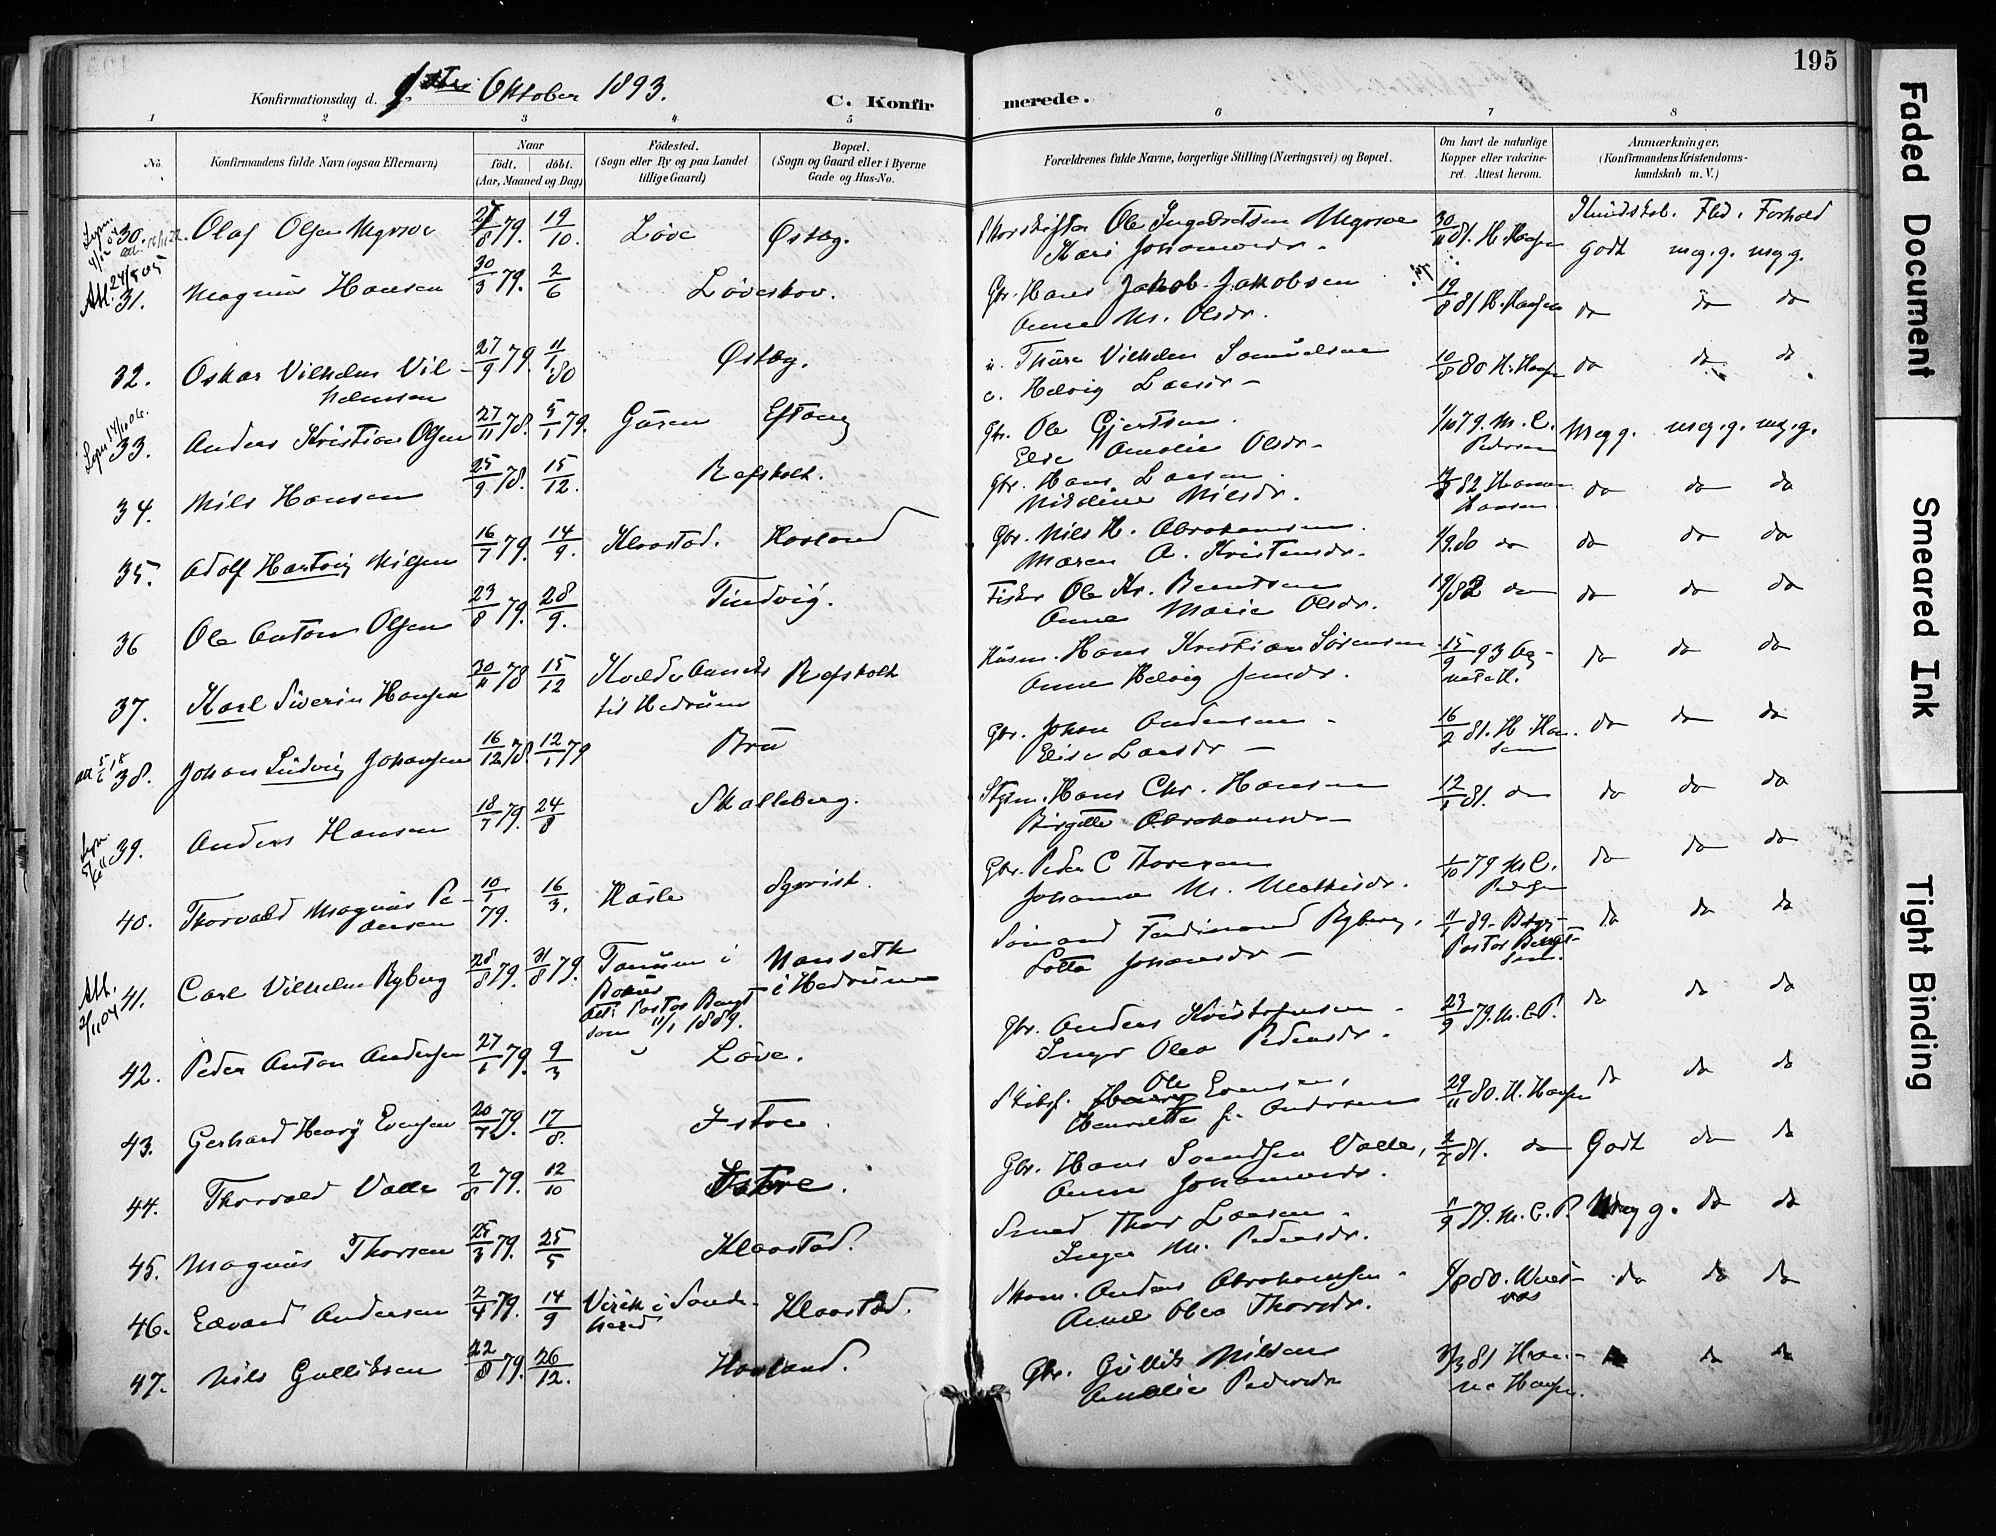 195
Konfirmationsdag d. 1ste Oktober 1893.
C. Konfirmerede.
1 2 3 4 5 6 7 8
No.
Konfirmandens fulde Navn (ogsaa Efternavn)
Naar
født. døbt.
(Aar, Maaned og Dag)
Fødested.
(Sogn eller By og paa Landet
tillige Gaard)
Bopæl.
(Sogn og Gaard eller i Byerne
Gade og Hus-No.
Forældrenes fulde Navne, borgerlige Stilling (Næringsvei) og Bopæl.
Om havt de naturlige
Kopper eller vakcine-
ret. Attest herom.
Anmærkninger.
(Konfirmandens Kristendoms-
kundskab m. V.)
Kundskab. Flid. Forhold
30. Olaf Olsen 79. 19/10. Løve Østby. Ole Ingebretsen
Kari Johannesdr. 30/11 81. H. Hansen godt meg.g. meg.g.
Att. 24/5 05
31. Magnus Hansen 30/3 79. 2/6 Løveskov. Gbr. Hans Jakob Jakobsen
Anne M. Olsdr. 19/8 81 H. Hansen do do do
32. Oskar Vilhelm Vil-
helmsen 27/9 79. 11/1 80 Østby. Thure Vilhelm Samuelsen
Hedvig Larsdr 80 H. Hansen do do do
33. Anders Kristian Olsen 27/11 78. 5/1 79. Guren Eftang Gbr. Ole Gjertsen.
Else Amalie Olsdr. 1/10 79. M. C.
Pedersen Meg g. meg.g. meg.g.
34. Nils Hansen 25/9 78. 15/12. Refsholt. Gbr. Hans Larsen
Nikoline Nilsdr. 82 Hanna
Hansen do do do
35. Adolf Hartvig Nilsen 16/7 79. 14/9. Klaastad. Haaland Gbr. Nils H. Abrahamsen.
Maren A. Kristensdr. 1/9 80 do do do do
36 Ole Anton Olsen 23/8 79. 28/9. Tindvig. Fisker Ole Kr. Berntsen
Anne Marie Olsdr. 82 do do do do
37. Karl Siverin Hansen 30/11 78 15/12
til Hedrum Refsholt Husm. Hans Kristian Sørensen
Anne Helvig Jensdr. 15/9 93 do do do
38. Johan Ludvig Johansen 16/12 78. 12/1 79 Bru Gbr. Johan Andersen
Elise Larsdr 16/2 81. H. Han-
sen do do do
39. Anders Hansen 18/7 79. 24/8 Skalleberg. Styrm. Hans Chr. Hansen
Birgitte Abrahamsdr 12/1 81. do do do do
40. Thorvald Magnus Pe-
dersen 10/1 79. 16/3. Hasle Gbr. Peder C Thoresen
Johanna M. Mathisdr. 1/10 79 M. C.
Pedersen do do do
Att. 2/11 04
41. Carl Vilhelm Ryberg 28/8 79. 31/8 79. Tanum i
Bohus
Att. Pastor Bengt-
son 11/1 1889. Nanseth
i Hedrum Sømand Ferdinand Ryberg,
Lotta Johansdr 11/1 89.
Pastor Bengt-
son. do do do
42. Peder Anton Andersen 27/1 79. 9/3 Løve. Gbr. Anders Kristofersen
Inger Olea Pedersdr. 23/9 79. M. C. P. do do do
43. Gerhard Henry Evensen 20/7 79. 17/8. Istre. Skibsf. Ole Evensen,
Henriette f. Andersen 29/11 80. H. Hansen do do do
44. Thorvald Valle 2/8 79. 12/10 Istre. Gbr. Hans Svendsen Valle,
Anne Johannesdr. 2/7 81. do Godt do do
45. Magnus Thorsen 25/3 79. 25/5 Klaastad. Smed Thor Larsen.
Inger M. Pedersdr. 79. M. C. P. Meg g. do do
46. Edvard Andersen 2/4 79. 14/9 Virik i Sande-
herred Klaastad. Anders Abrahamsen
Anne Olea Thorsdr. 80. do do do
47. Nils Gulliksen 22/8 79. 26/12. Haaland. Gbr. Gullik Nilsen
Amalie Pedersdr 81 Han-
na Hansen. do do
Faded Document
Smeared Ink
Tight Binding